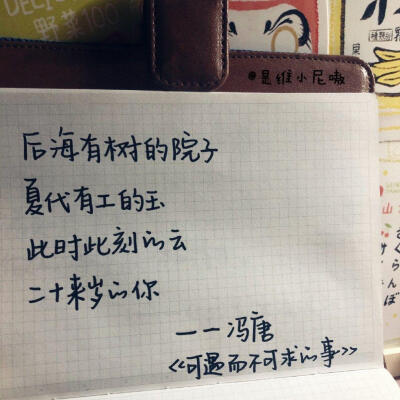 DELIC
野菜100
@是维小尼嗷
后海有树的院子
夏代有工的玉
此时此刻的云
二十来岁的你
——冯唐
<<可遇而不可求的事>>
山
さくらんぼ